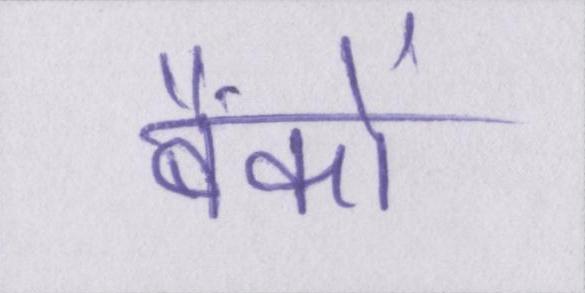 बैंकों